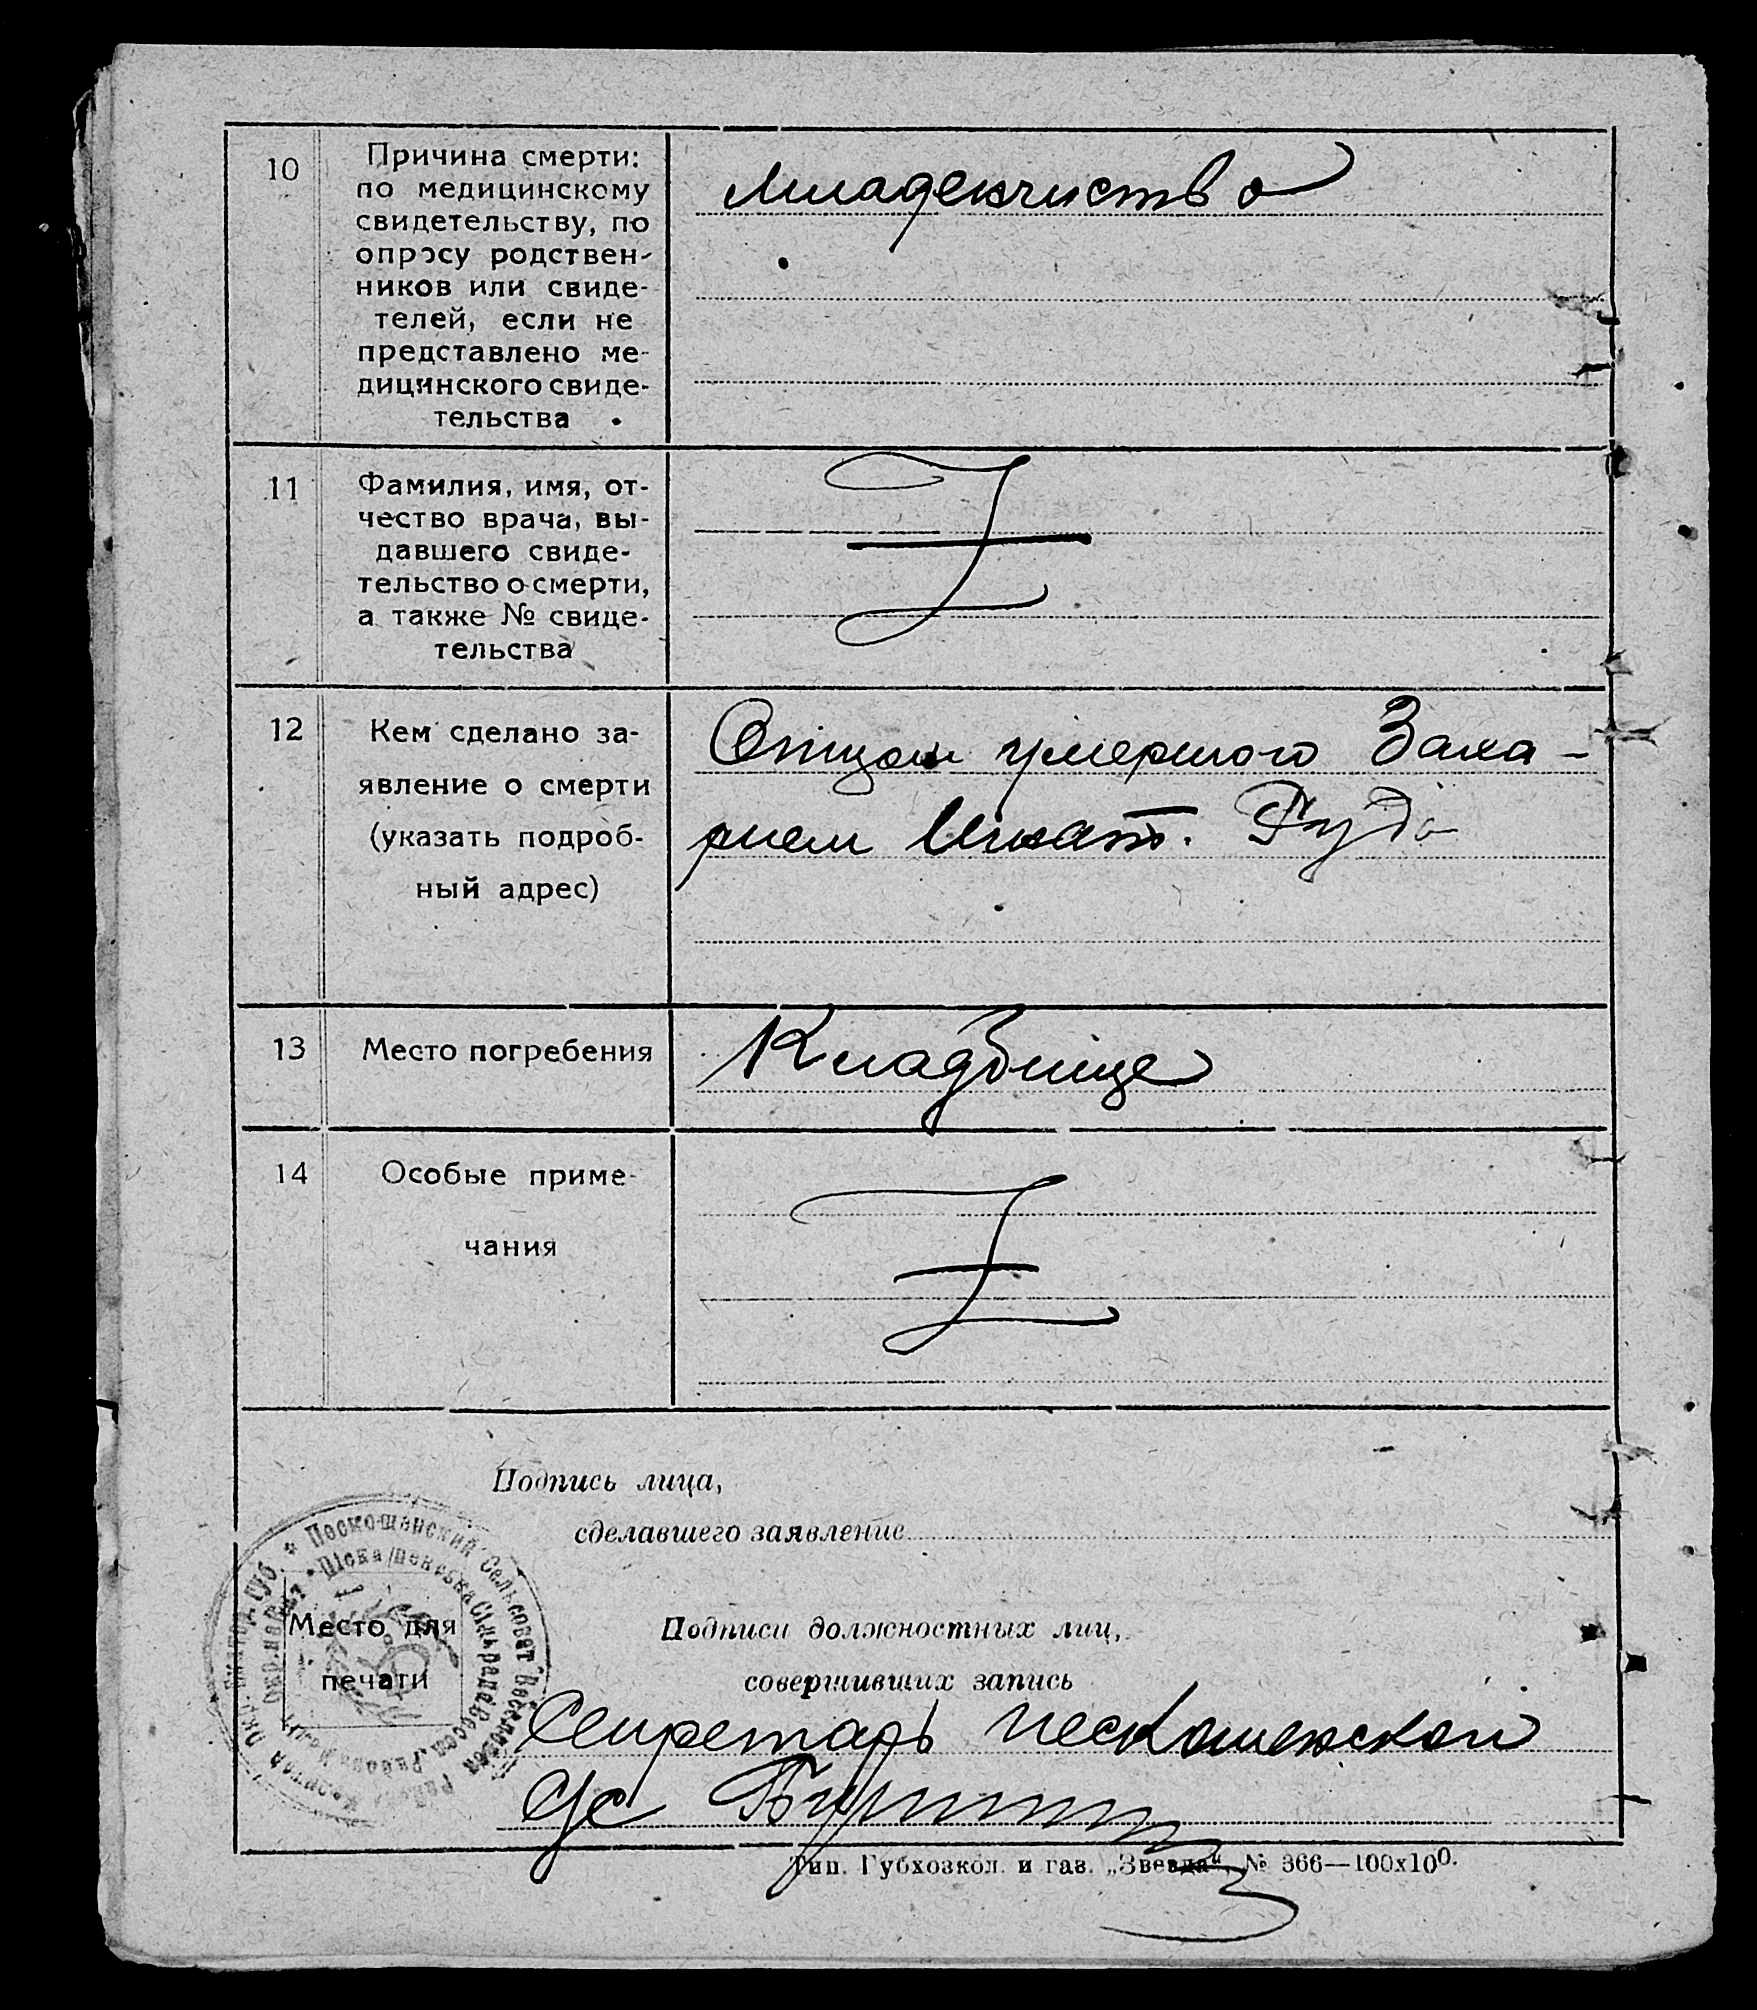 10
Причина смерти:
по медицинскому
свидетельству, по
опросу родствен-
ников или свиде-
телей, если не
представлено ме-
дицинского свиде-
тельства
Младенчиство
11
Фамилия, имя, от-
чество врача, вы-
давшего свиде-
тельство о смерти,
а также № свиде-
тельства
12
Кем сделано за-
явление о смерти
(указать подроб-
ный адрес)
Отцом умершого Заха-
рием Игнат.
13
Место погребения
Кладбище
14
Особые приме-
чания
Подпись лица,
сделавшего заявление
Место для
печати
Песко<wbr>шенский Сельсовет
Подписи должностных лиц,
совершивших запись
Секретарь Пескошенской
Тип. Губхозкол. и газ. „Звезда“, № 366—100х100.